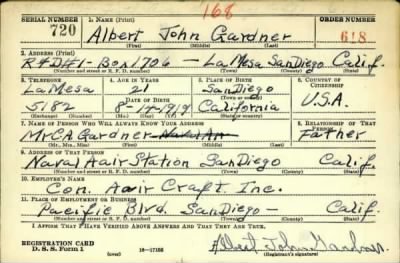 168
SERIAL NUMBER 1. Name (Print) ORDER NUMBER
720 Albert John Gardner 618
(First) (Middle) (Last)
2. Address (Print)
RFD#1-Box1706 — La Mesa San Diego Calif.
(Number and street or R. F. D. number) (Town) (County) (State)
3. Telephone 4. Age in Years 5. Place of Birth 6. Country of Citizenship
La Mesa 21 San Diego
Date of Birth (Town or county)
5182 8-14-1919 California U.S.A.
(Exchange) (Number) (Mo.) (Day) (Yr.) (State or country)
7. Name of Person Who Will Always Know Your Address 8. Relationship of That Person
Mr CA Gardner Father
(Mr., Mrs., Miss) (First) (Middle) (Last)
9. Address of That Person
Naval Aair Station San Diego Calif.
(Number and street or R. F. D. number) (Town) (County) (State)
10. Employer's Name
Con. Aair Craft. Inc.
11. Place of Employment or Business
Pacific Blvd. San Diego — Calif.
(Number and street or R. F. D. number) (Town) (County) (State)
I Affirm That I Have Verified Above Answers and That They Are True.
REGISTRATION CARD
D. S. S. Form 1 (over) 16—17105 Albert John Gardner
(Registrant's signature)